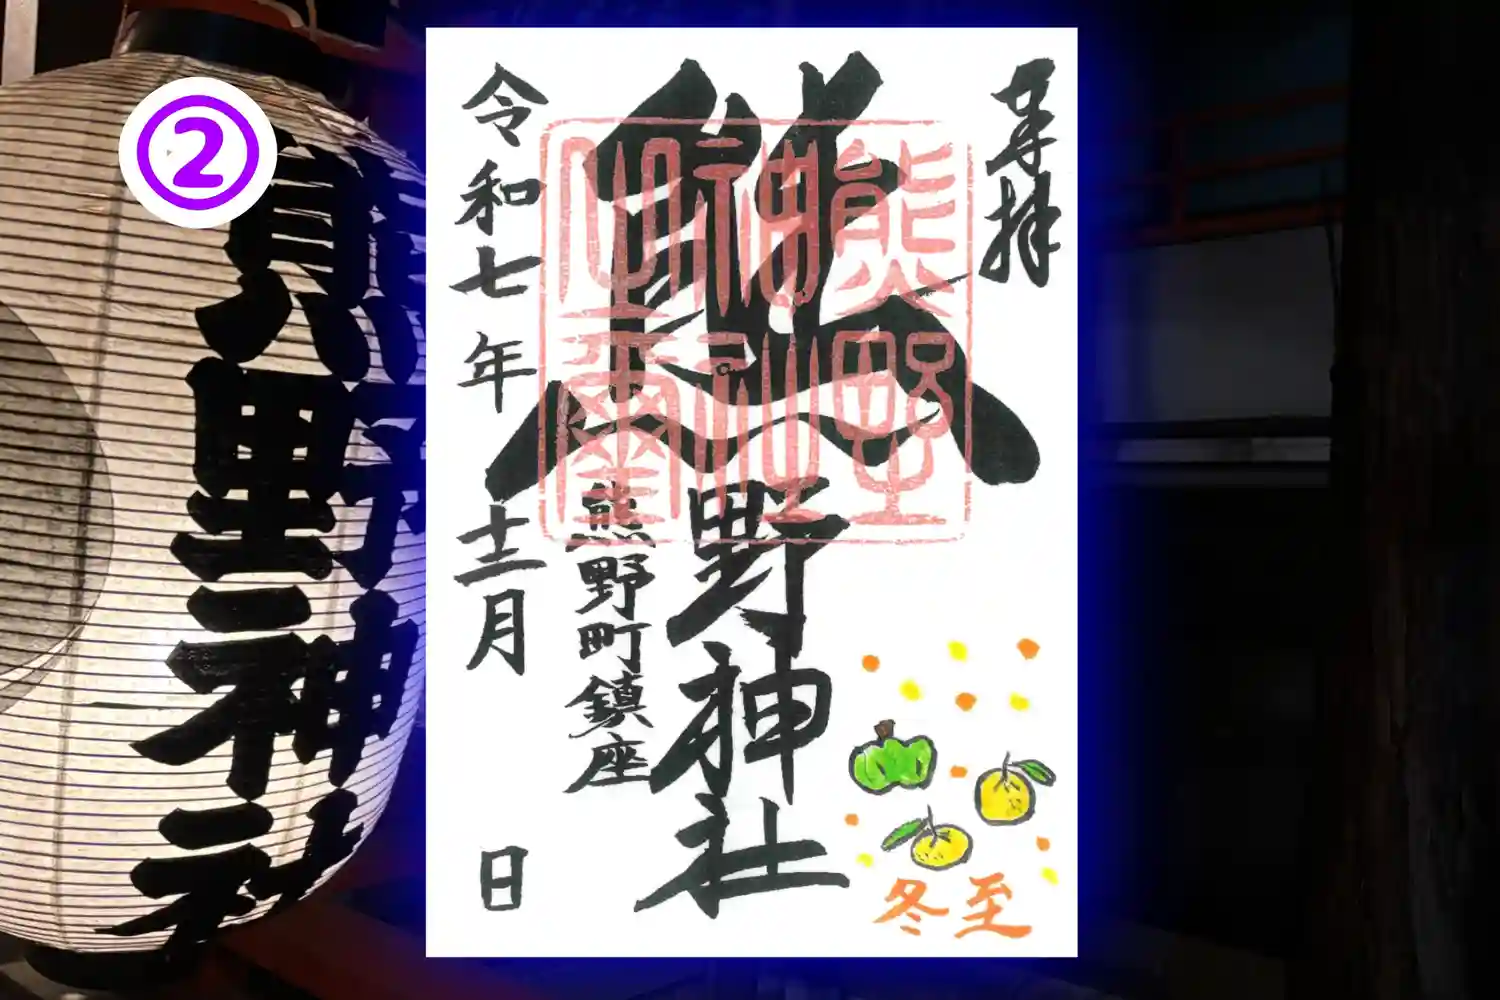 ②
熊野神社
奉拝
熊野神社
熊野神社之璽
熊野町鎮座
令和七年十二月 日
冬至